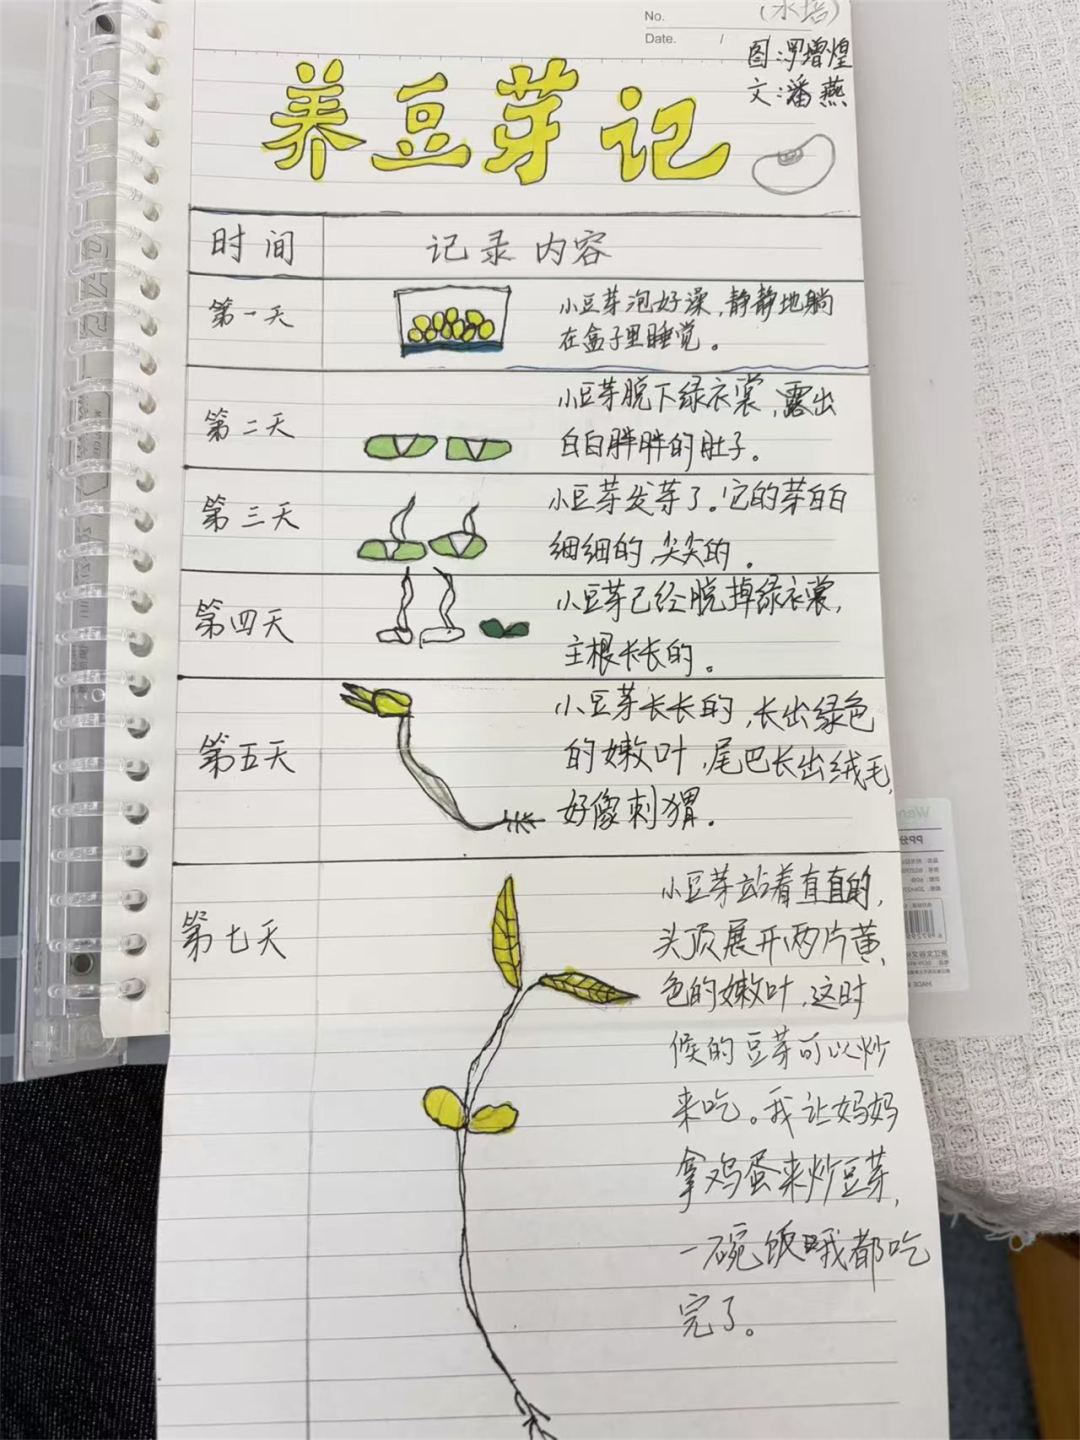 No.
(水培)
Date. /
图:罗增煌
文:潘燕
养豆芽记
时间 记录内容
第一天
小豆芽泡好澡,静静地躺
在盒子里睡觉。
第二天
小豆芽脱下绿衣裳,露出
白白胖胖的肚子。
第三天
小豆芽发芽了。它的芽白白
细细的,尖尖的。
第四天
小豆芽已经脱掉绿衣裳,
主根长长的。
第五天
小豆芽长长的,长出绿色
的嫩叶,尾巴长出绒毛,
好像刺猬.
第七天
小豆芽站着直直的,
头顶展开两片黄
色的嫩叶,这时
候的豆芽可以炒
来吃。我让妈妈
拿鸡蛋来炒豆芽,
一碗饭我都吃
完了。